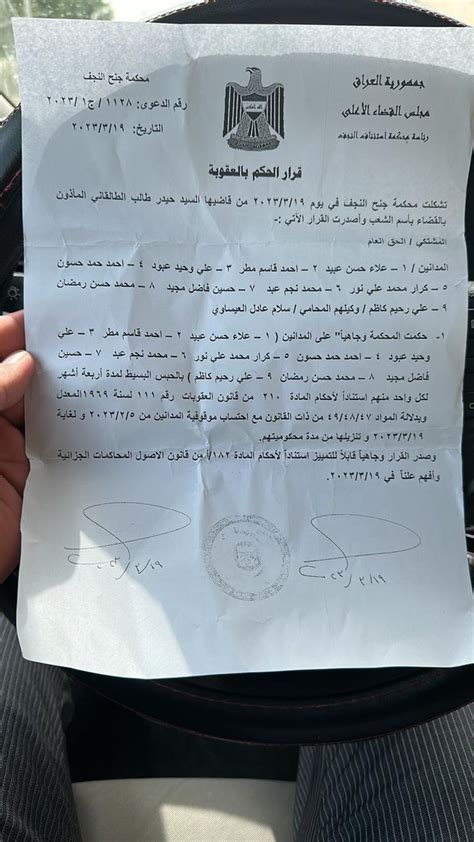 جمهورية العراق
مجلس القضاء الأعلى
رئاسة محكمة استئناف النجف
محكمة جنح النجف
رقم الدعوى: ١١٢٨/ج١/٢٠٢٣
التاريخ: ٢٠٢٣/٣/١٩
قرار الحكم بالعقوبة
تشكلت محكمة جنح النجف في يوم ٢٠٢٣/٣/١٩ من قاضيها السيد حيدر طالب الطالقاني المأذون
بالقضاء بأسم الشعب وأصدرت القرار الآتي :-
المشتكي / الحق العام
المدانين / ١ – علاء حسن عبيد ٢ – احمد قاسم مطر ٣ – علي وحيد عبود ٤ – احمد حمد حسون
٥ – كرار محمد علي نور ٦ – محمد نجم عبد ٧ – حسين فاضل مجيد ٨ – محمد حسن رمضان
٩ – علي رحيم كاظم / وكيلهم المحامي / سلام عادل العيساوي
١- حكمت المحكمة وجاهياً على المدانين ( ١ – علاء حسن عبيد ٢ – احمد قاسم مطر ٣ – علي
وحيد عبود ٤ – احمد حمد حسون ٥ – كرار محمد علي نور ٦ – محمد نجم عبد ٧ – حسين
فاضل مجيد ٨ – محمد حسن رمضان ٩ – علي رحيم كاظم ) بالحبس البسيط لمدة أربعة أشهر
لكل واحد منهم استناداً لأحكام المادة ٢١٠ من قانون العقوبات رقم ١١١ لسنة ١٩٦٩ المعدل
وبدلالة المواد ٤٩/٤٨/٤٧ من ذات القانون مع احتساب موقوفية المدانين من ٢٠٢٣/٢/٥ و لغاية
٢٠٢٣/٣/١٩ و تنزيلها من مدة محكوميتهم.
وصدر القرار وجاهياً قابلاً للتمييز استناداً لأحكام المادة ١٨٢/أ من قانون الاصول المحاكمات الجزائية
وأفهم علناً في ٢٠٢٣/٣/١٩.